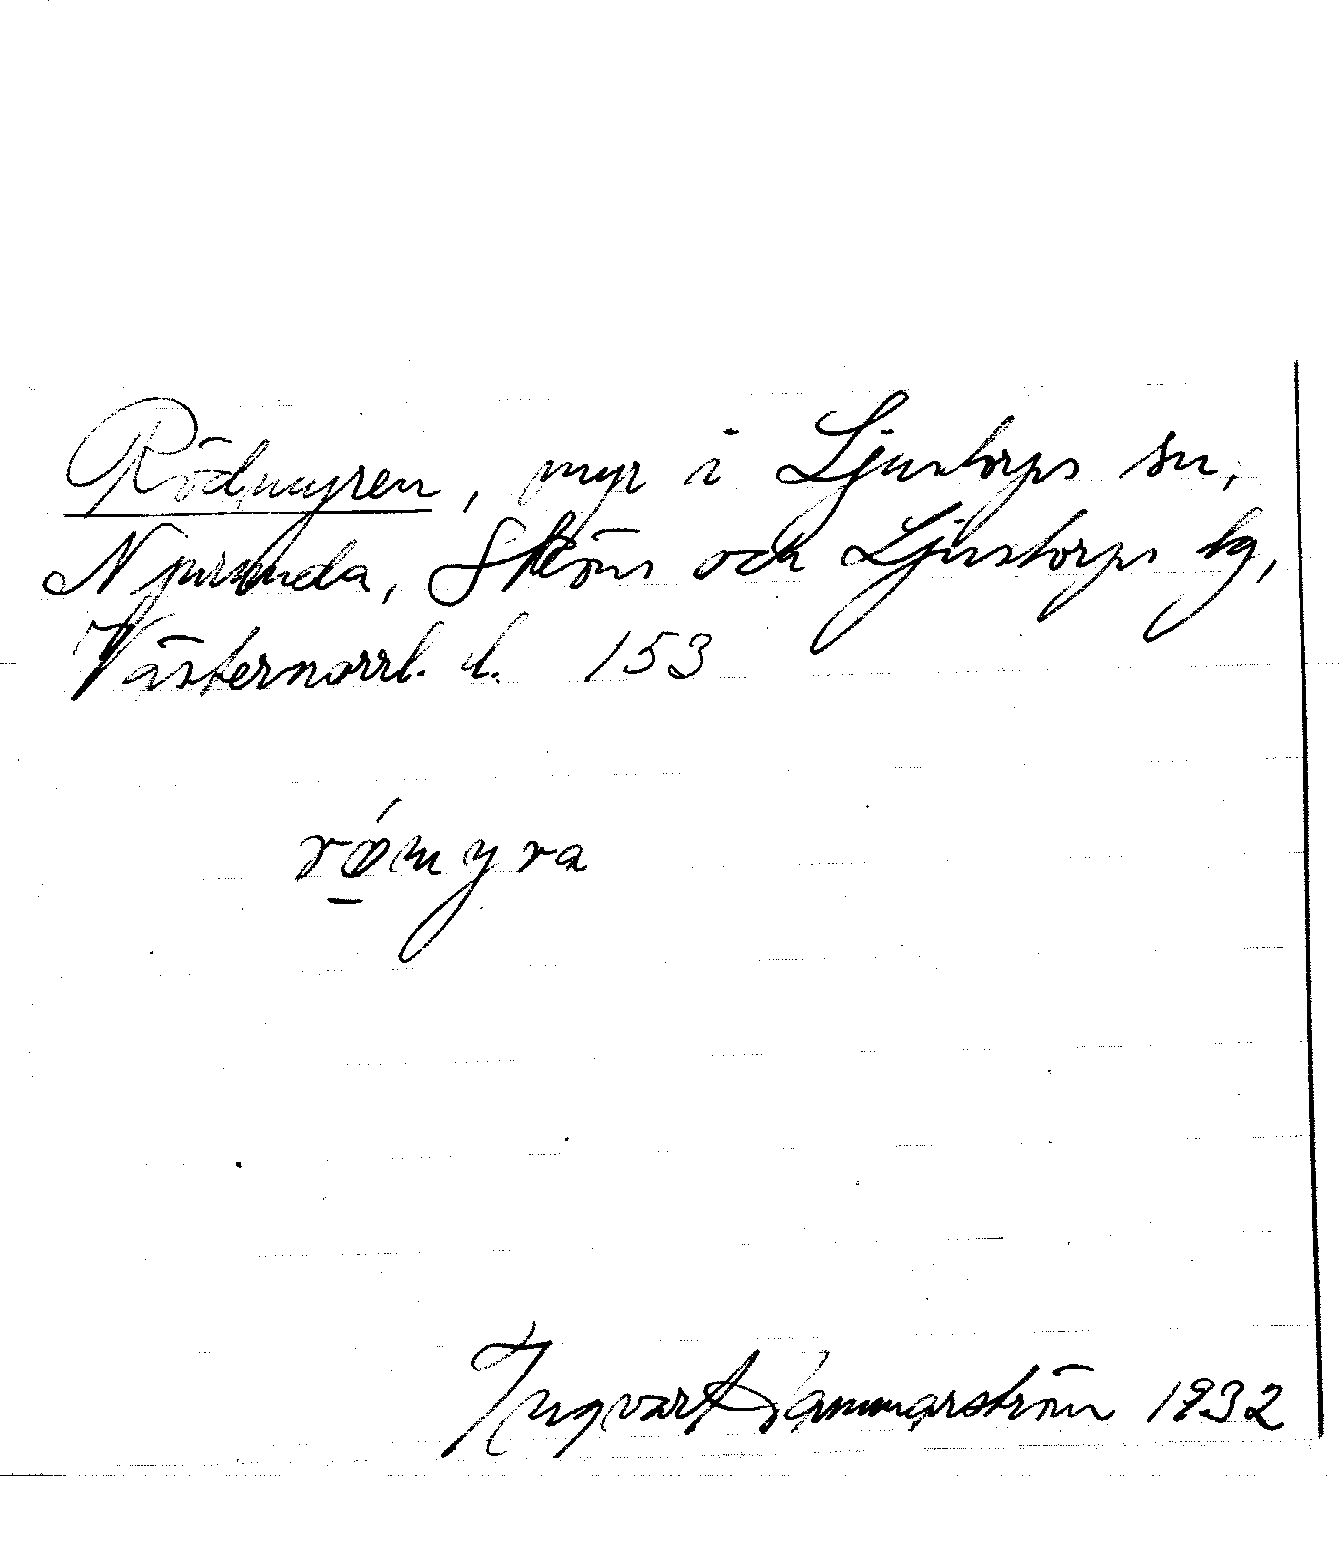 Rödmyren, myr i Ljustorps sn,
Njurunda, Sköns och Ljustorps tg,
Västernorrl. l. 153
rǿ̱myra
Ingvart Hammarström 1932